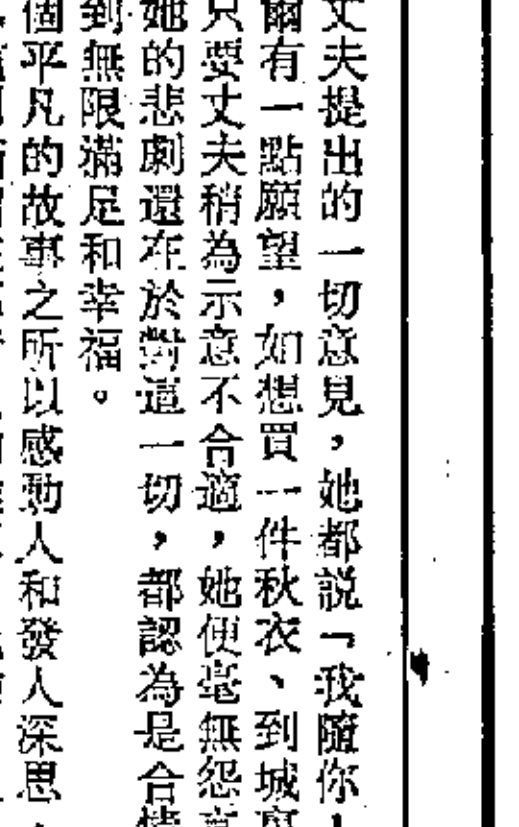 丈夫提出的一切意見，她都説「我隨你
爾有一點願望，如想買一件秋衣、到城裏
只要丈夫稍為示意不合適，她便毫無怨言
她的悲劇還在於對這一切，都認為是合情
到無限滿足和幸福。
個平凡的故事之所以感動人和發人深思，